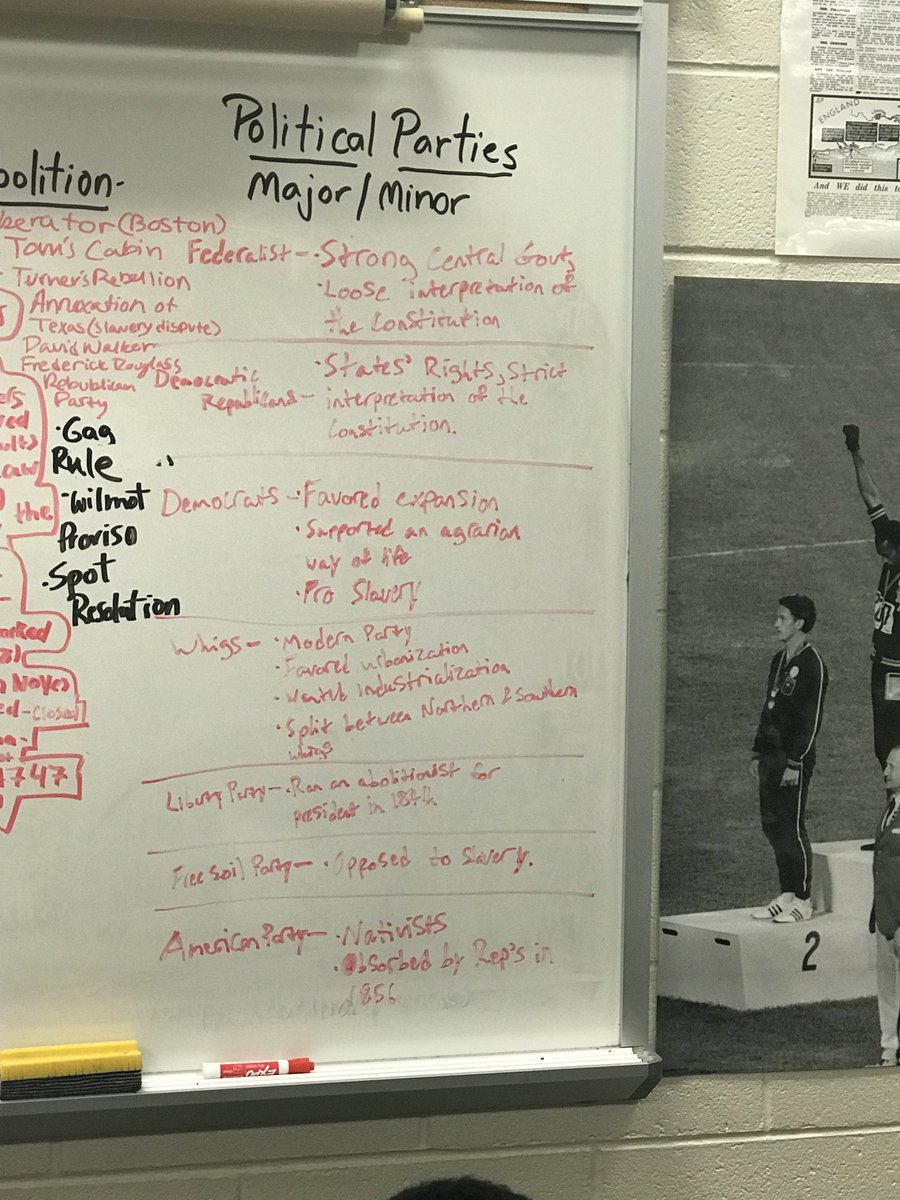 Political Parties
Major/Minor
Federalist - • Strong Central Govt,
• Loose interpretation of
the Constitution
Democratic
Republicans -
• States' Rights, Strict
interpretation of the
Constitution.
Democrats - • Favored expansion
• Supported an agrarian
way of life
• Pro Slavery
Whigs - • Modern Party
• Favored urbanization
• Wanted industrialization
• Split between Northern & Southern
Whigs
Liberty Party - • Ran an abolitionist for
president in 1844
Free Soil Party - • Opposed to Slavery.
American Party - • Nativists
• Absorbed by Rep's in
1856
olition-
berator (Boston)
Tom's Cabin
Turner's Rebellion
Annexation of
Texas (slavery dispute)
David Walker
Frederick Douglass
Republican
Party
• Gag
Rule
• Wilmot
Proviso
• Spot
Resolution
the
-closed
1747
EXPO
ENGLAND
And WE did this to
2